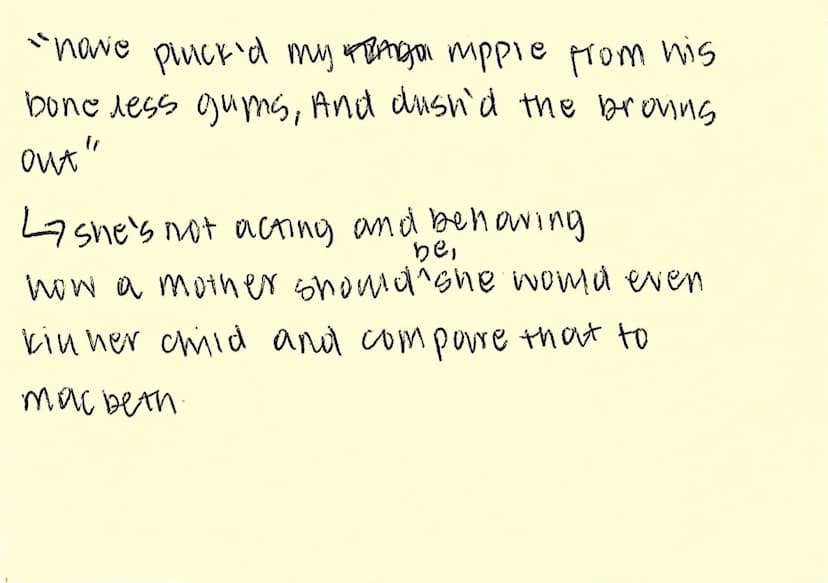 "have pluck'd my nipple from his
boneless gums, And dash'd the brains
out"
↳ she's not acting and behaving
be,
how a mother should ^ she would even
kill her child and compare that to
macbeth.